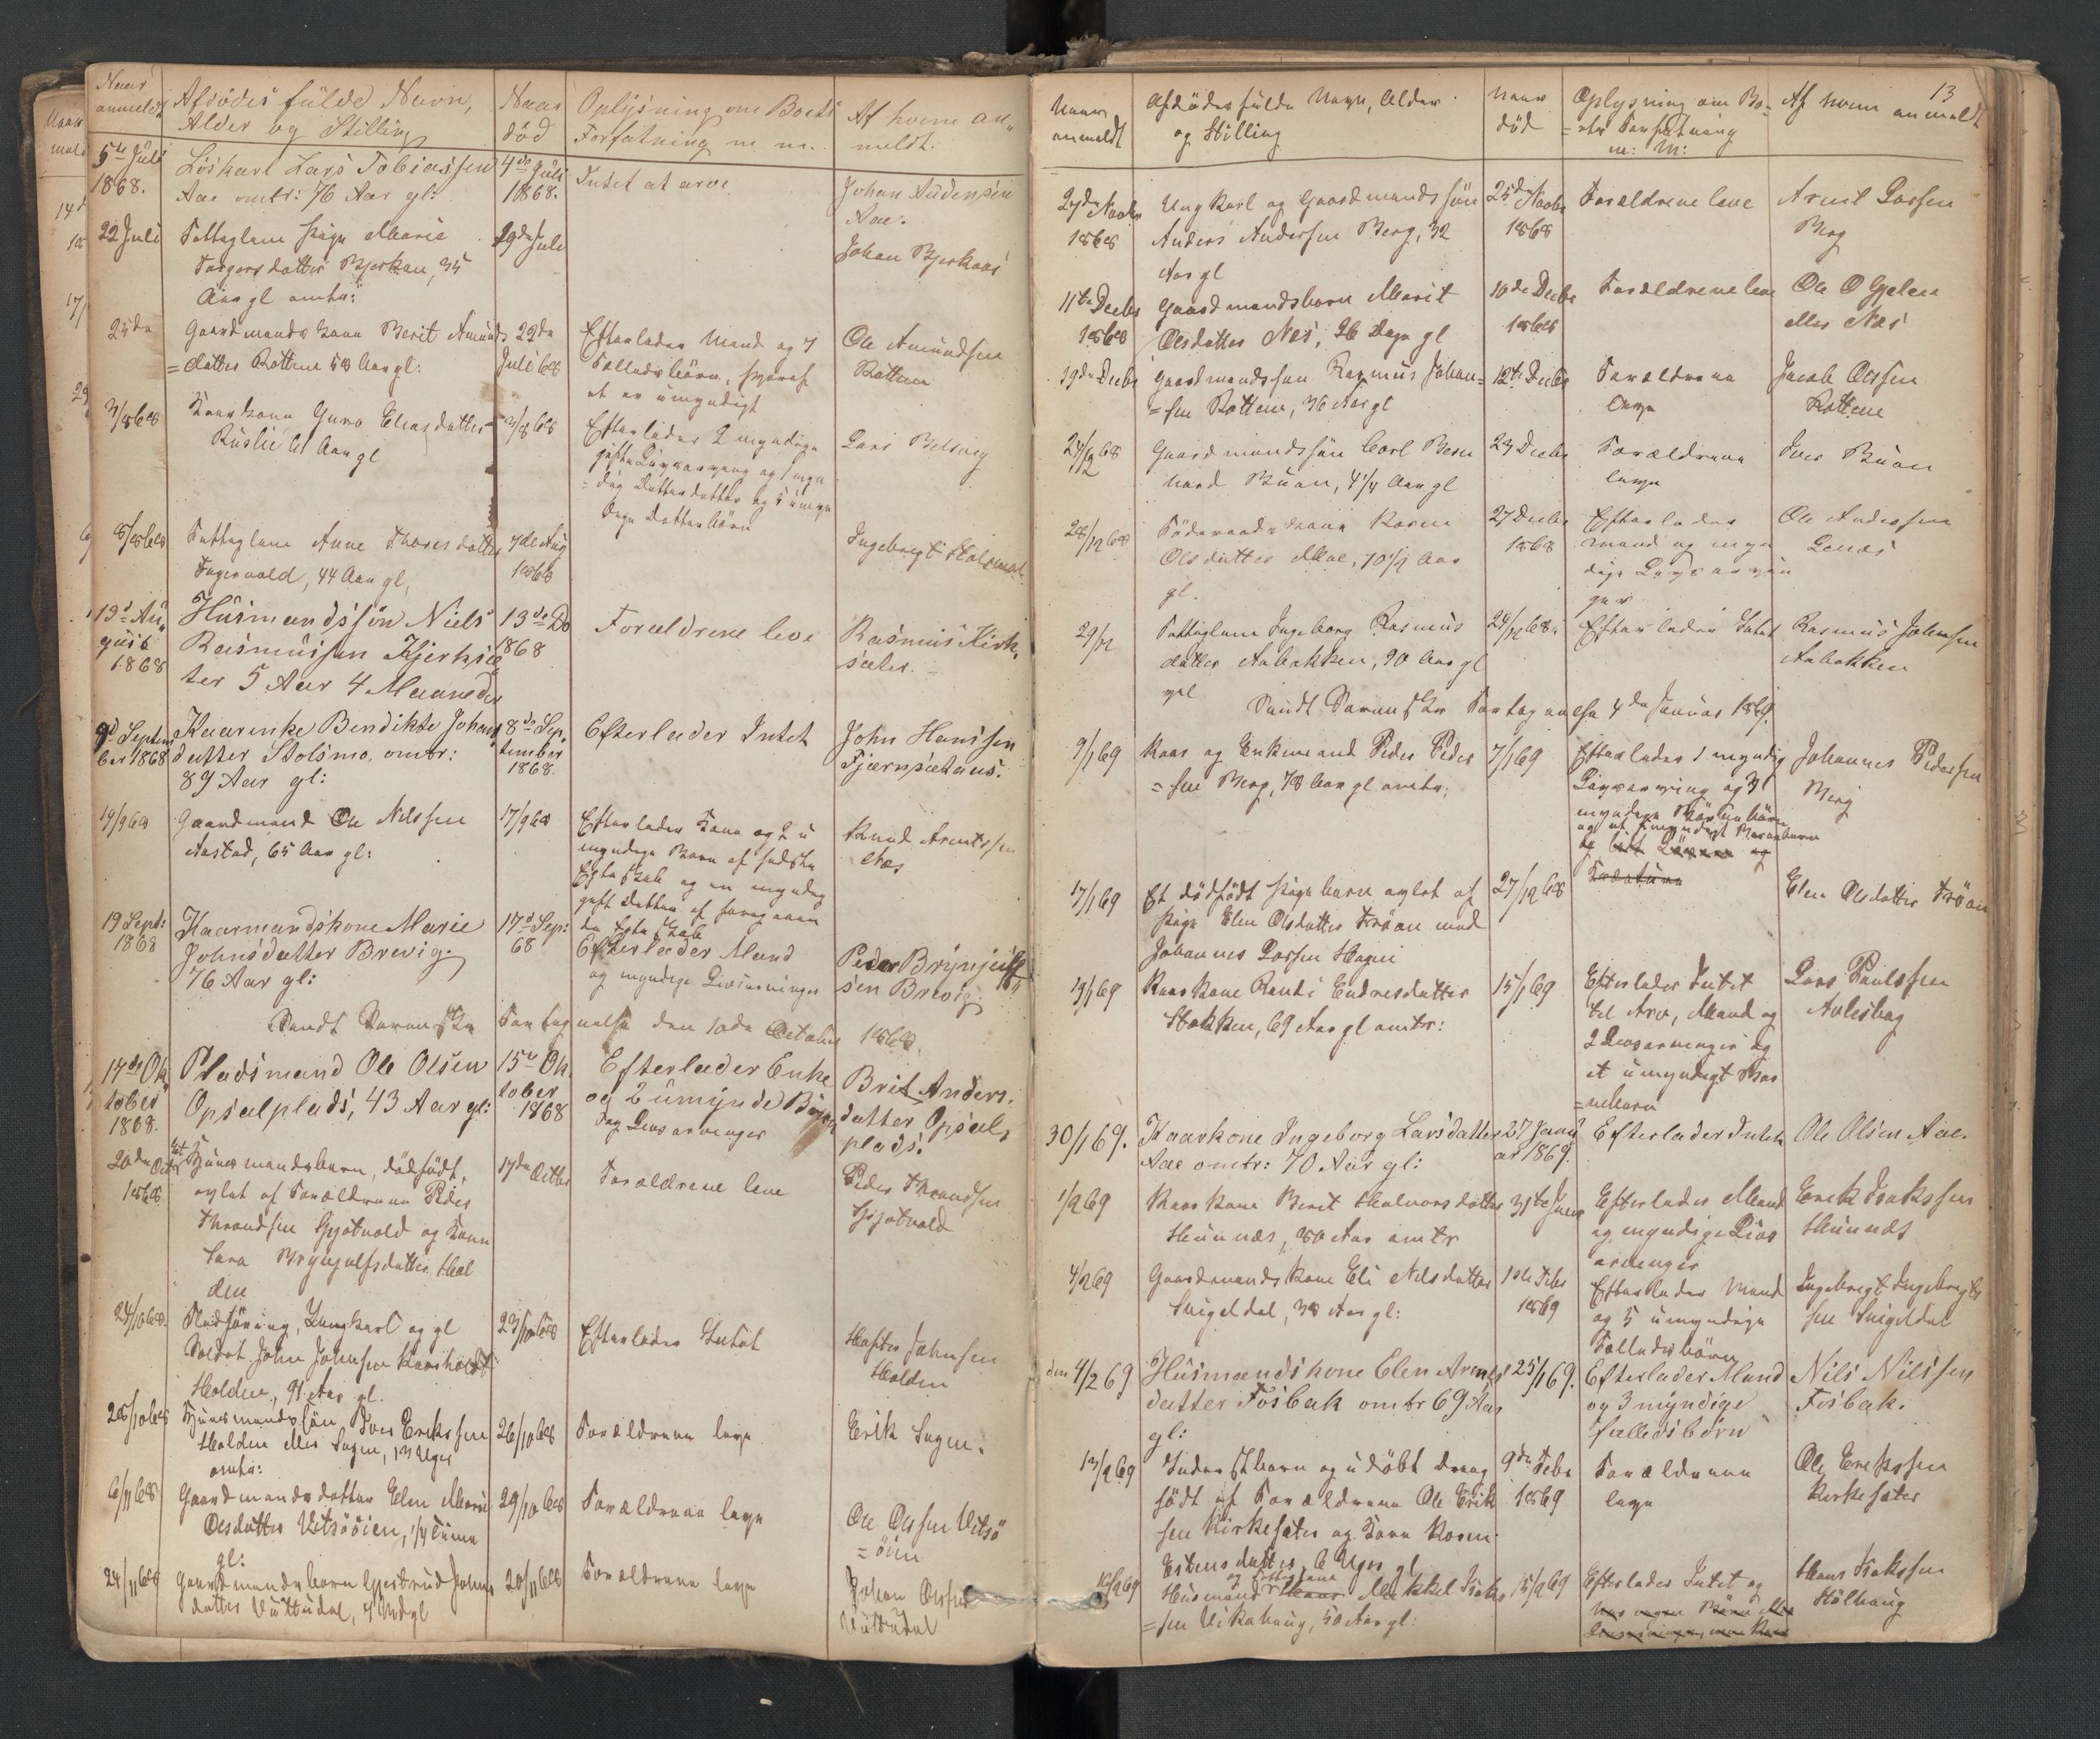 Naar
anmeldt
Afdødes fulde Navn,
Alder og Stilling
Naar
død
Oplysning om Boets
Forfatning m. m.
Af hvem an„
meldt.
5te Juli
1868.
Løskarl Lars Tobiassen
Aae omtr: 76 Aar gl:
4de Juli
1868.
Intet at arve.
Johan Audensen
Aae.
22 Juli
Fattiglem Pige Marie
Torgersdatter Bjerkan, 35
Aar gl omtr:
Juli
Johan Bjerkaas
Gaardmands Kone Berit Amunds
=datter Rottem 58 Aar gl:
22de
Juli 68
Efterlader Mand og 7
Fælledsbørn, hvoraf
et er umyndigt
Ole Amundsen
Rottem
3/8 68
Kaarkone Guro Eliasdatter
Ruslie 61 Aar gl
3/8 68
Efterlader 2 myndige
gifte Livsarving og 1 myn
=dig Datterdatter og 5 umyn
dige Datterbørn
Lars Belsvig
8/8 68
Fattiglem Anne Thoresdatter
Fagervold, 44 Aar gl,
7de Aug
1868
Ingebrigt Stolsmo
13d Au„
gust
1868
Husmandssøn Niels
Rasmussen Kjerksæ
ter 5 Aar 4 Maaneder
13de Do
1868
Forældrene leve
Rasmus Kirk„
sæter.
9d Septem
ber 1868
Kaarenke Bendikte Johans
datter Stolsmo, omtr:
89 Aar gl:
8de Sep„
tember
1868.
Efterlader Intet
John Hanssen
Tjærnsætaus.
19/9 68
Gaardmand Ole Nilssen
Aastad, 65 Aar gl:
17/9 68
Efterlader Kone og 2 u
myndige Børn af sidste
Egteskab og en myndig
gift Datter af foregaaen
de Egteskab
Knud Arntssen
Næs
19 Sept:
1868
Kaarmandskone Marie
Johnsdatter Brevig.
76 Aar gl:
17d Sep:
68
Efterlader Mand
og myndige Livsarvinger
Peder Brynjulf
sen Brevig.
Sendt Sorenskr Fortegnelse den 10de October 1868.
17de Ok„
tober
1868.
Pladsmand Ole Olsen
Opsalplads, 43 Aar gl:
15de Ok„
tober
1868
Efterlader Enke
og 2 umynde Børn
Livsarvinger
Brit Anders„
datter Opsal„
plads.
20de Octr
1868
et Husmandsbarn, dødfødt,
avlet af Forældrene Peder
Throndsen Gjøtvold og Kone
Sara Brynjulfsdatter Hol
den
17de Octbr
Forældrene leve
Peder Throndsen
Gjøtvold
24/10 68.
Ungkarl og gl
Soldat John Johnsen
Holden, 91 Aar gl.
23/10 68
Efterlader Intet
Johnsen
Holden
28/10 68
Husmandssøn Ivar Erikssen
Holden eller Sagen, 13 Uger
omtr:
26/10 68
Forældrene leve
Erik Sagen.
6/11 68
Gaardmandsdatter Elen Marie
Olsdatter Vitsøøien, 1/4 Time
gl:
29/10 68
Forældrene leve
Ole Olssen Vitsø
=øien
24/11 68
Gaardmandsbarn Gjertrud Johns
datter Vuttudal, 4 gl
20/11 68
Forældrene leve
Johan Olssen
Vuttudal
13
Naar
anmeldt
Afdødes fulde Navn, Alder
og Stilling
Naar
død
Oplysning om Bo-
=ets Forfatning
m: m:
Af hvem anmeldt
27de Novbr
1868
Ungkarl og Gaardmandssøn
Anders Anderssen Berg, 32
Aar gl
25de Novbr
1868
Forældrene leve
Arnt Larssen
Berg
11te Decbr
1868
Gaardmandsbarn Marit
Olsdatter Næs, 26 Dage gl
10de Decbr
1868
Forældrene leve
Ole O Gjelen
eller Næs
19de Decbr
Gaardmandssøn Rasmus Johan=
=sen Rottem, 36 Aar gl
12te Decbr
Forældrene
leve
Jacob Olssen
Rottem
24/12 68
Gaardmandssøn Carl Bern
hard Buan, 4 1/4 Aar gl
23 Decbr
Forældrene
leve
Iver Buan
28/12 68
Føderaads Kone Karen
Olsdatter Moe, 70 1/2 Aar
gl.
27 Decbr
1868
Efterlader
Mand og myn
dige Livsarvin
ger
Ole Anderssen
Lenæs
29/12
Fattiglem Ingeborg Rasmus
datter Aabakken, 90 Aar gl
24/12 68.
Efterlader Intet
Rasmus Johnsen
Aabakken
Sendt Sorenskr Fortegnelse 4de Januar 1869.
9/1 69
Kaar og Enkemand Peder Peder
=sen Berg, 78 Aar gl omtr:
7/1 69
Efterlader 1 myndig
Livsarving og 3
myndige
og et umyndigt Barnebarn
Johannes Pederssen
Berg
17/1 69
Et dødfødt Pigebarn avlet af
Pige Elen Olsdatter Krøan med
Johannes Larssen Hagen
27/12 68
Elen Olsdatter Krøan
19/1 69
Kaarkone Randi Endresdatter
Stokken, 69 Aar gl omtr:
15/1 69
Efterlader Intet
til Arv, Mand og
2 Livsarvinger og
et umyndigt Bar
=nebarn
Lars Paulssen
30/1 69.
Kaarkone Ingeborg Larsdatter
Aae omtr: 70 Aar gl:
27 Janu
ar 1869.
Efterlader Intet
Ole Olsen Aae.
1/2 69
Kaarkone Berit Halvorsdatter
Hunnes, 80 Aar omtr
31te Janr
Efterlader Mand
og myndige Livs
arvinger
Erik Isakssen
Hunnes
4/2 69
Gaardmandskone Eli Nilsdatter
Snigeldal, 38 Aar gl:
1ste Febr
1869
Efterlader Mand
og 5 umyndige
Fælledsbørn
Ingebrigt Ingebrigt
sen Snigeldal
den 4/2 69
Husmandskone Elen Arnts
datter Fosbak omtr 69 Aar
gl:
25/1 69.
Efterlader Mand
og 3 myndige
fælledsbørn
Nils Nilssen
Fosbak.
13/2 69
Inderstbarn og udøbt Dreng
født af Forældrene Ole Erik
sen Kirkesæter og Kone Karen
Estensdatter, 6 Uger gl
9de Febr
1869
Forældrene
leve
Ole Erikssen
Kirkesæter
69
og Fattiglem
Husmand Mikkel Isaks
=sen Vikahaug, 50 Aar gl:
15/2 69
Efterlader Intet og
Hans Isakssen
Stølhaug